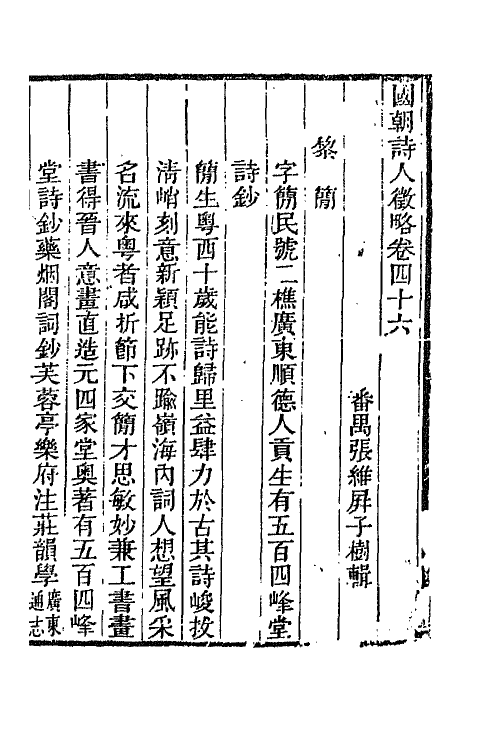 國朝詩人徵略卷四十六
番禺張維屏子樹輯
黎簡
字簡民號二樵廣東順德人貢生有五百四峰堂
詩鈔
簡生粵西十歲能詩歸里益肆力於古其詩峻拔
淸峭刻意新穎足跡不踰嶺海內詞人想望風采
名流來粵者咸折節下交簡才思敏妙兼工書畫
書得晉人意畫直造元四家堂奧著有五百四峰
堂詩鈔藥烟閣詞鈔芙蓉亭樂府注莊韻學廣東通志